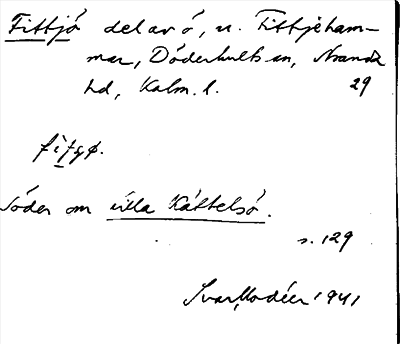 Fittjö del av ö, n. Fittjeham-
mar, Döderhults sn, Stranda
hd, Kalm. l. 29
fìtʒø.
Söder om lilla Kättelsö.
s. 129
Ivar Modéer 1941